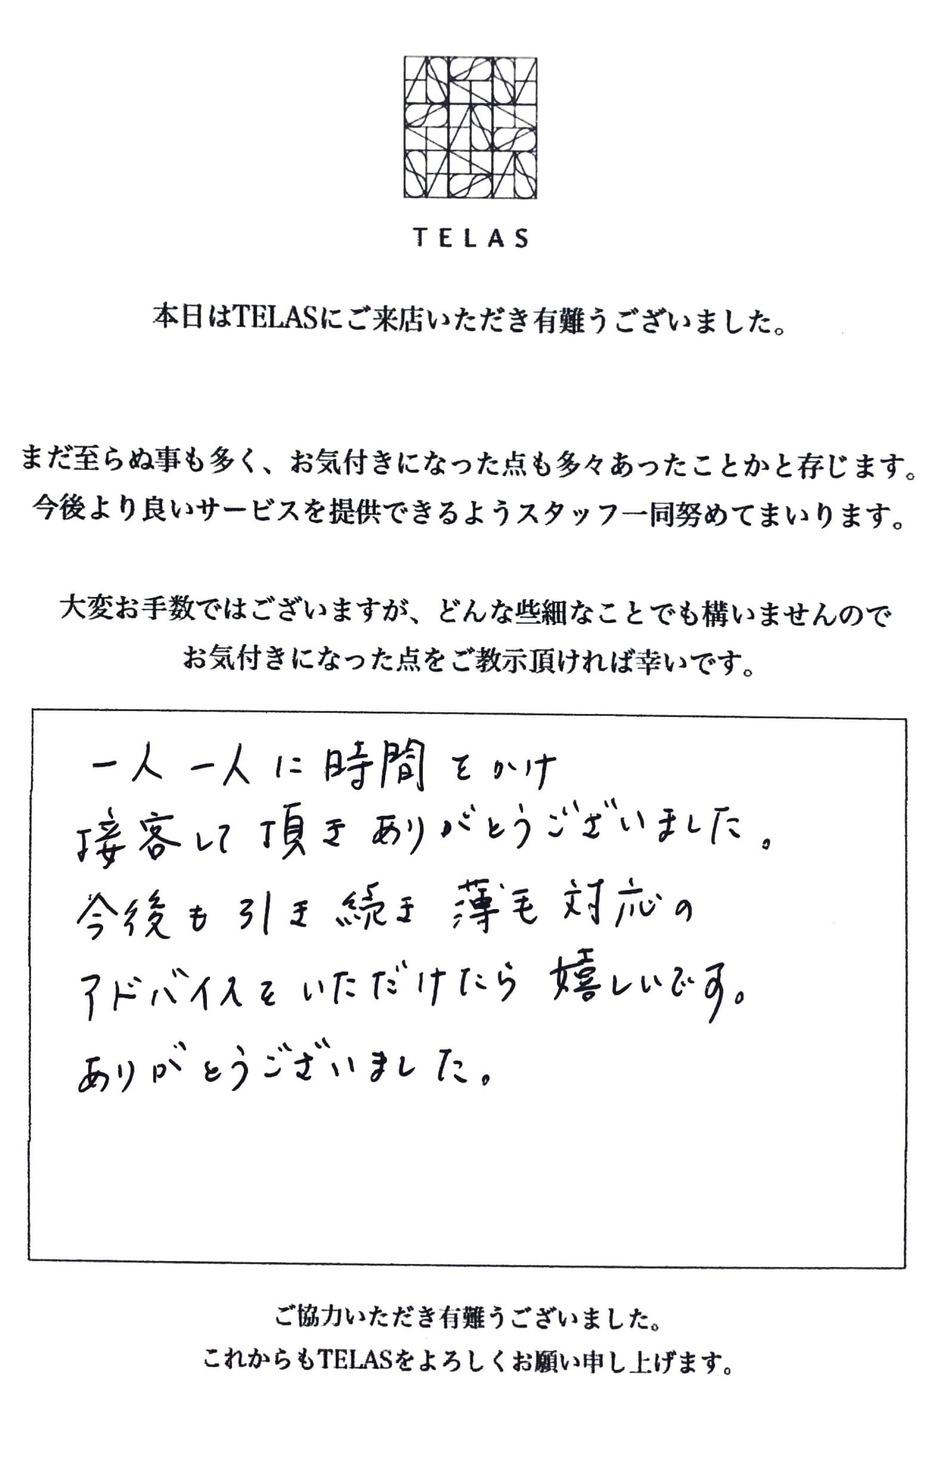 TELAS
本日はTELASにご来店いただき有難うございました。
まだ至らぬ事も多く、お気付きになった点も多々あったことかと存じます。
今後より良いサービスを提供できるようスタッフ一同努めてまいります。
大変お手数ではございますが、どんな些細なことでも構いませんので
お気付きになった点をご教示頂ければ幸いです。
一人一人に時間をかけ
接客して頂きありがとうございました。
今後も引き続き薄毛対応の
アドバイスをいただけたら嬉しいです。
ありがとうございました。
ご協力いただき有難うございました。
これからもTELASをよろしくお願い申し上げます。